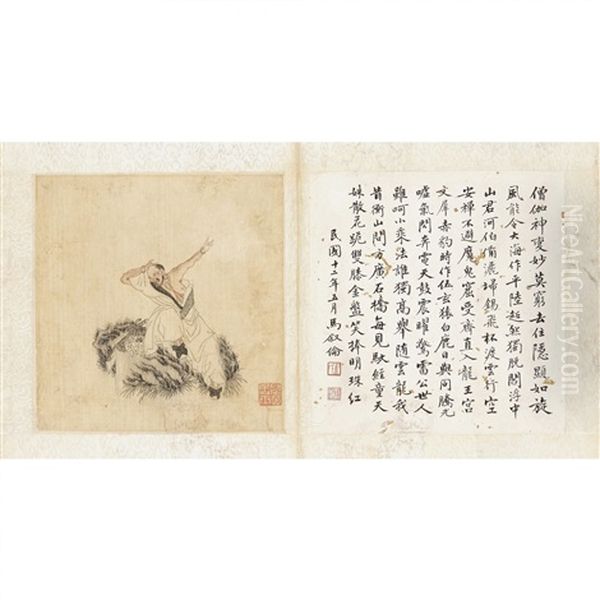 僧伽神變妙莫窮去住隱顯如旋
風能令大海作平陸超然獨脫閻浮中
山君河伯備灑埽錫飛杯渡雲行空
安禪不避魔鬼窟受齋直入龍王宮
文犀赤豹時作伍玄猿白鹿日與同騰光
噓氣閃奔電天鼓震曜驚雷公世人
雖呵小乘法誰獨高舉隨雲龍我
昔衡山問方廣石橋每見馱經童天
妹散花跪雙膝金盤笑捧明珠紅
民國十二年五月馬叙倫
NiceArtGallery.com